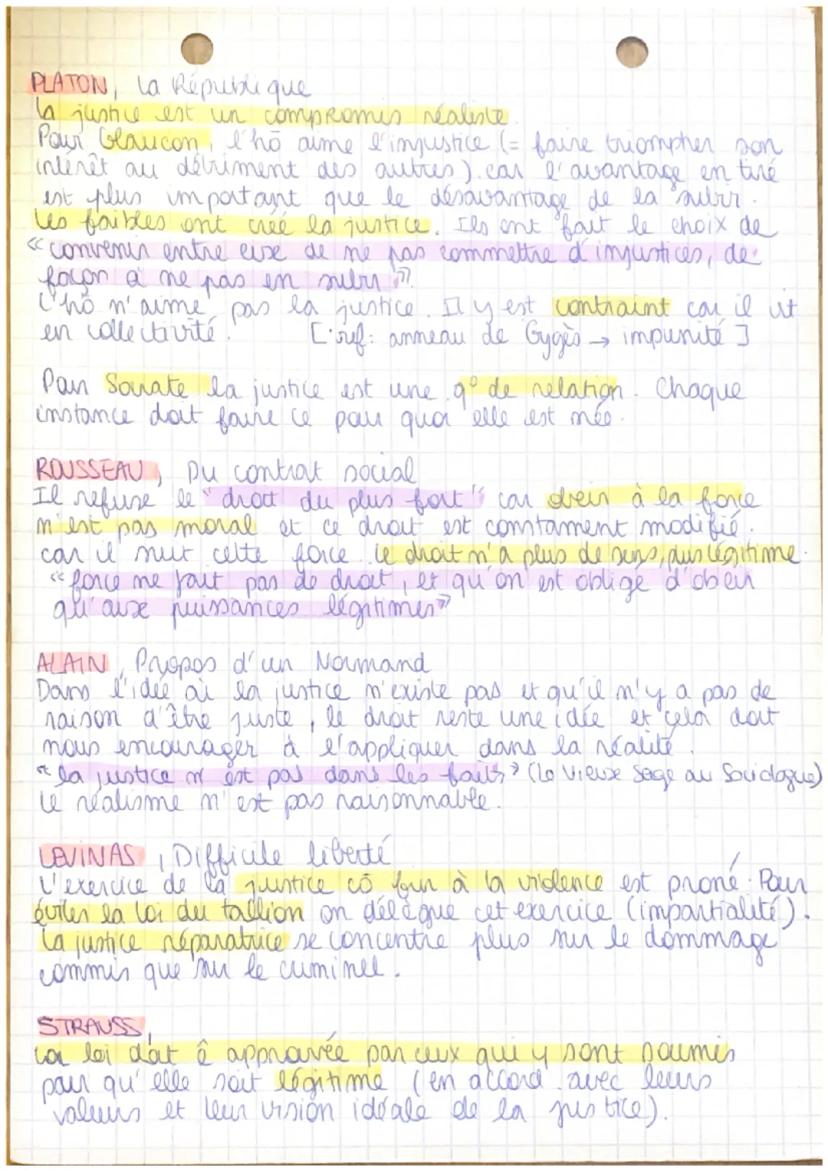 PLATON, La République
La justice est un compromis réaliste
Pour Glaucon, l'hô aime l'injustice (= faire triompher son
intérêt au détriment des autres) car l'avantage en tiré
est plus important que le désavantage de la subir.
Les faibles ont créé la justice. Ils ont fait le choix de
« convenir entre eux de ne pas commettre d'injustices, de
façon à ne pas en subir ».
L'hô n'aime pas la justice. Il y est contraint car il vit
en collectivité. [réf: anneau de Gygès → impunité]
Pour Socrate la justice est une q° de relation. Chaque
instance doit faire ce pour quoi elle est née.
ROUSSEAU, Du contrat social
Il refuse le "droit du plus fort" car obéir à la force
n'est pas moral et ce droit est constamment modifié.
car il suit cette force. Le droit n'a plus de sens, plus légitime.
« force ne fait pas de droit, et qu'on est obligé d'obéir
qu'aux puissances légitimes »
ALAIN, Propos d'un Normand
Dans l'idée où la justice n'existe pas et qu'il n'y a pas de
raison d'être juste, le droit reste une idée et cela doit
nous encourager à l'appliquer dans la réalité.
« la justice n'est pas dans les faits » (Le Vieux Sage au Sociologue)
Le réalisme n'est pas raisonnable.
LEVINAS, Difficile liberté
L'exercice de la justice cô fin à la violence est prôné. Pour
éviter la loi du tallion on délègue cet exercice (impartialité).
La justice réparatrice se concentre plus sur le dommage
commis que sur le criminel.
STRAUSS,
La loi doit ê approuvée par ceux qui y sont soumis
pour qu'elle soit légitime (en accord avec leurs
valeurs et leur vision idéale de la justice).